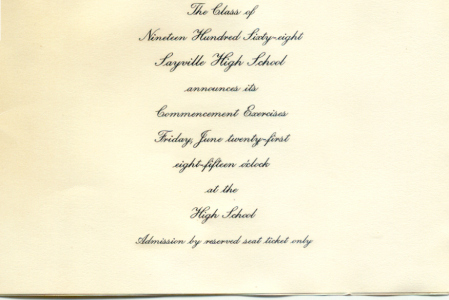 The Class of
Nineteen Hundred Sixty-eight
Sayville High School
announces its
Commencement Exercises
Friday, June twenty-first
eight-fifteen o'clock
at the
High School
Admission by reserved seat ticket only